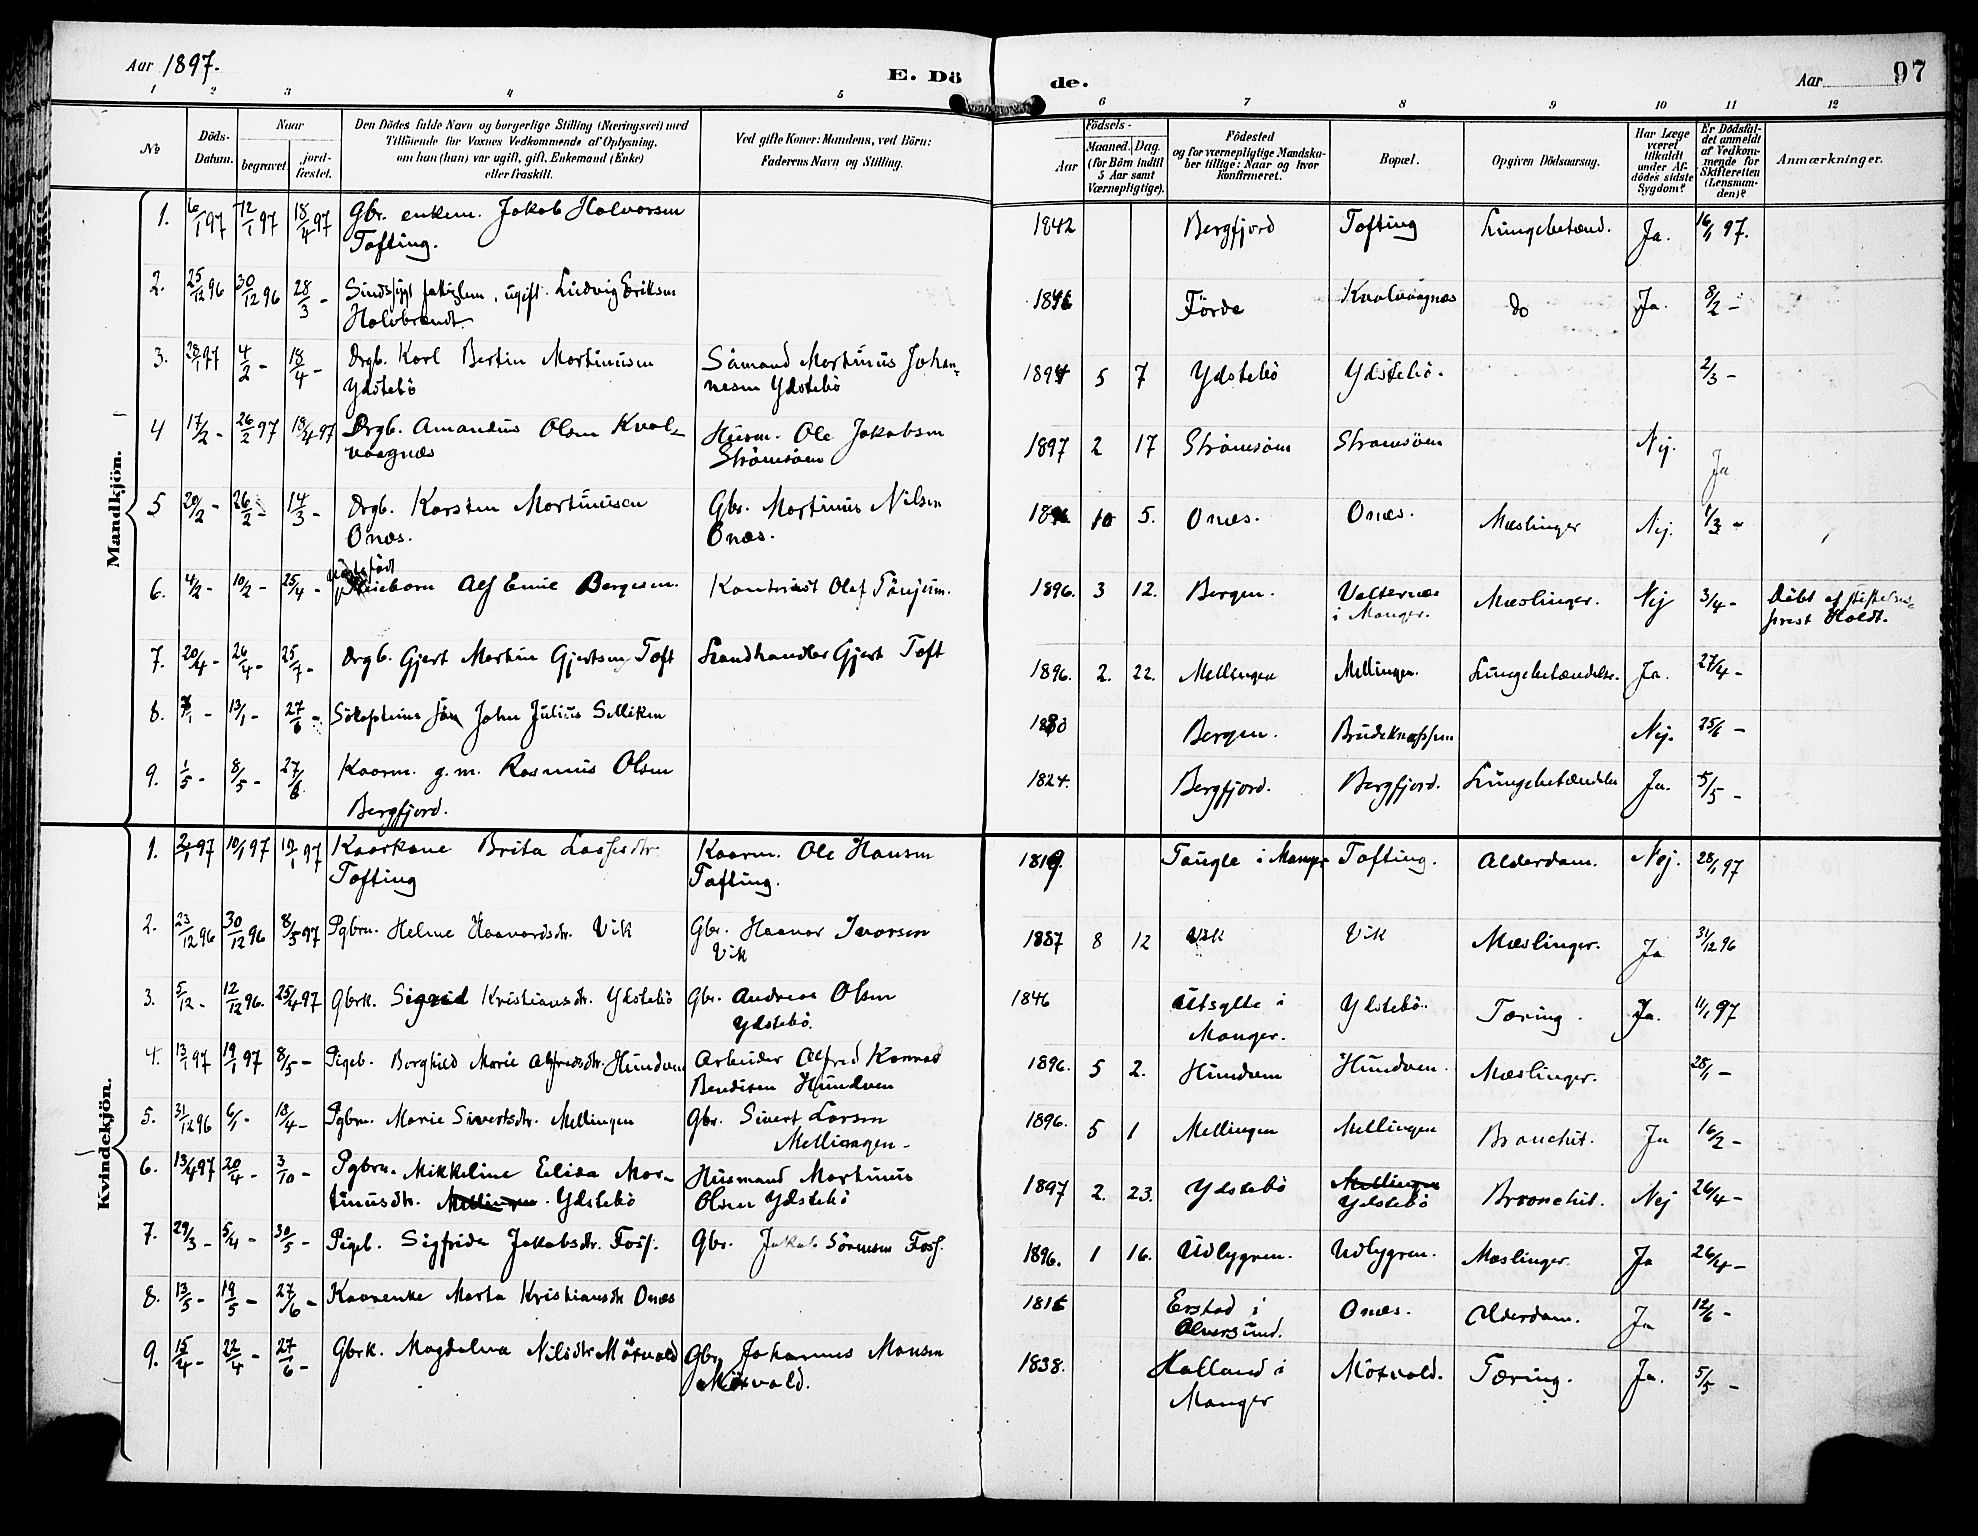 Aar 1897.
E. Dö
de.
Aar
97
1 2 3 4 5 6 7 8 9 10 11 12
No
Döds-
Datum.
Naar
begravet.
jord-
fæstet.
Den Dödes fulde Navn og borgerlige Stilling (Næringsvei) med
Tilföiende for Voxnes Vedkommende af Oplysning,
om hun (han) var ugift, gift, Enkemand (Enke)
eller fraskilt.
Ved gifte Koner: Mandens, ved Börn:
Faderens Navn og Stilling.
Födsels-
Aar
Maaned. Dag.
(for Börn indtil
5 Aar samt
Værnepligtige).
Födested
og for værnepligtige Mandska-
ber tillige: Naar og hvor
konfirmeret.
Bopæl.
Opgiven Dödsaarsag.
Har Læge
været
tilkaldt
under Af-
dödes sidste
Sygdom?
Er Dödsfal-
det anmeldt
af Vedkom-
mende for
Skifteretten
(Lensman-
den)?
Anmærkninger.
Mandkjön.
1. 6/1 97 12/1 97 18/4 97 Gbr. enkem. Jakob Halvorsen
Tofting.
1842 Bergfjord Tofting Lungebetænd. Ja. 16/1 97.
2. 25/12 96 30/12 96 28/3 - ugift. Ludvig Eriksen
Halvbrendt.
1846 Förde Kvalvaagnæs do Ja. 8/2 -
3. 28/1 97 4/2 - 18/4 - Drgb. Karl Bertin Martinusen
Ydstebö
Sömand Martinus Johan-
nesen Ydstebö
1894 5 7 Ydstebö Ydstebö. 2/3 -
4 17/2 - 26/2 97 18/4 97 Drgb. Amandus Olsen Kval-
vaagnæs
Husm. Ole Jakobsen
Strömsöen
1897 2 17 Strömsöen Strömsöen Nej. Ja
5 20/2 - 26/2 - 14/3 - Drgb. Karsten Martinusen
Onæs.
Gbr. Martinus Nilsen
Onæs.
10 5. Onæs. Onæs. Mæslinger Nej. 1/3 -
6. 4/2 - 10/2 - 25/4 - Alf Emil Bergesen.
Olaf Tönjum.
1896. 3 12. Bergen. i Manger. Mæslinger. Nej 3/4 - Döbt af
prest Holdt.
7. 20/4 - 26/4 - 25/7 - Drgb. Gjert Martin Gjertsen Toft
Landhandler Gjert Toft
1896. 2. 22. Mellingen Mellingen. Lungebetændelse. Ja. 27/4 -
8. 13/1 - 27/6 - John Julius Selliken
1880 Bergen. Brudeknappen Nej. 25/6 -
9. 1/5 - 8/5 - 27/6 Kaarm. g.m. Rasmus Olsen
Bergfjord.
1824. Bergfjord. Bergfjord. Lungebetændelse Ja. 5/5 -
Kvindekjön.
1. 2/1 97 10/1 97 19/1 97 Kaarkone Brita Lassesdtr.
Tofting
Kaarm. Ole Hansen
Tofting.
1819. Taugle i Manger Tofting. Alderdom. Nej. 28/1 97
2. 23/12 96 30/12 96 8/5 97 Pgbrn. Helene Haavardsdtr. Vik
Gbr. Haavar Ivarsen
Vik
1887 8 12 Vik Vik Mæslinger. Ja 31/12 96
3. 5/12 - 12/12 96. 25/4 97 Gbrk. Sigrid Kristiansdtr. Ydstebö
Gbr. Andreas Olsen
Ydstebö.
1846 Utsylte i
Manger.
Ydstebö. Tæring. Ja. 11/1 97
4. 13/1 97 19/1 97 8/5 - Pigeb. Borghild Marie Alfredsdtr. Hundven
Arbeider Alfred Konrad
Bendixen Hundven
1896. 5 2. Hundven Hundven. Mæslinger. 28/1 -
5. 31/12 96 6/1 - 18/4 - Pgbrn. Marie Sivertsdtr. Mellingen
Gbr. Sivert Larsen
Mellingen -
1896. 5 1 Mellingen Mellingen Bronchit. Ja 16/2 -
6. 13/4 97 20/4 - 3/10 - Pgbrn. Mikkeline Elida Mar-
tinusdtr. Mellingen. Ydstebö
Husmand Martinus
Olsen Ydstebö
1897 2. 23. Ydstebö Mellingen
Ydstebö
Bronchit. Nej 26/4 -
7. 29/3 - 5/4 - 30/5 - Pigeb. Sigfrida Jakobsdtr. Foss.
Gbr. Jakob Sörensen Foss.
1896. 1 16. Udbygren. Udbygren. Mæslinger. Ja 26/4 -
8. 13/5 - 19/5 - 27/6 - Kaarenke Marta Kristiansdtr Onæs
Erstad i
Alversund.
Onæs. Alderdom. Ja 12/6 -
9. 15/4 - 22/4 - 27/6 - Gbrk. Magdelna Nilsdtr. Mötvold
Gbr. Johannes Monsen
Mötvold.
1838. Halland i
Manger
Mötvold. Tæring. Ja. 5/5 -